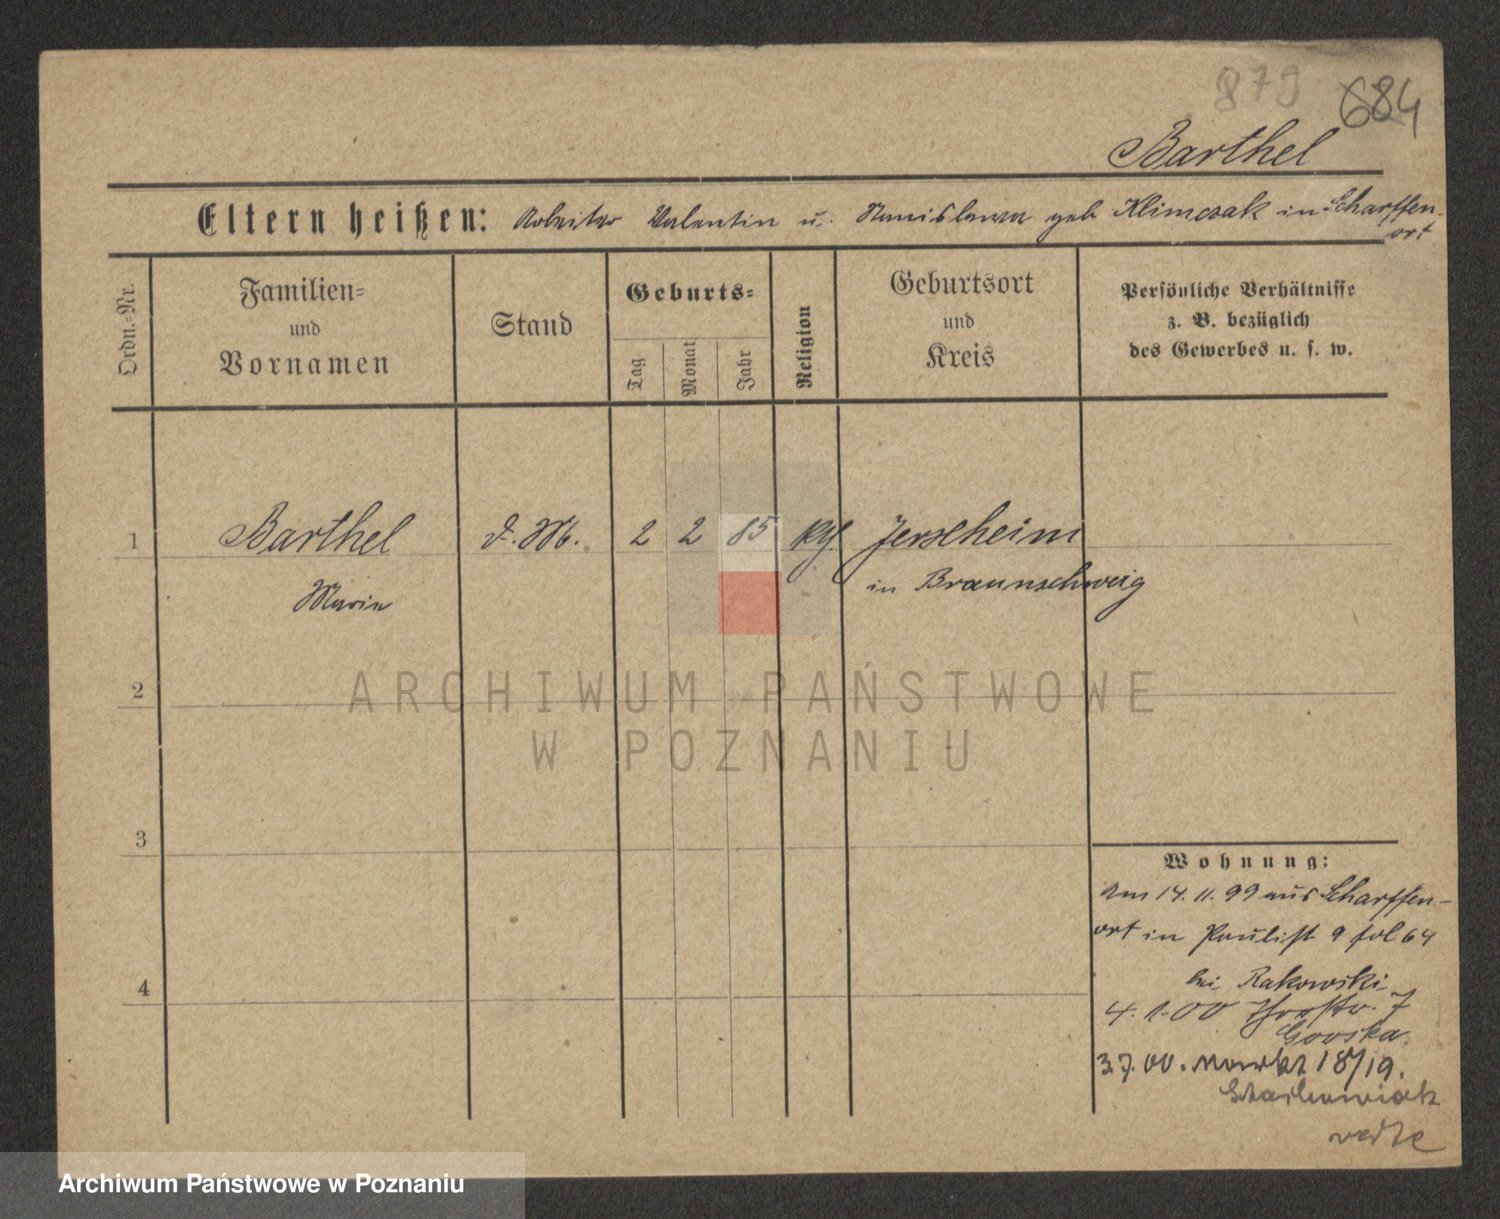 879 684
Barthel
Eltern heißen: Arbeiter Valentin u. Stanislawa geb Klimczak in Scharffen-
ort
Ordn.=Nr.
Familien=
und
Vornamen
Stand
Geburts=
Tag
Monat
Jahr
Religion
Geburtsort
und
Kreis
Persönliche Verhältnisse
z. B. bezüglich
des Gewerbes u. s. w.
1 Barthel d. M. 2 2 85 kth. Jerxheim
Maria in Braunschweig
2
3
4
ARCHIWUM PAŃSTWOWE
W POZNANIU
Wohnung:
Am 14. 11. 99 aus Scharffen-
ort in Paulist 9 fol 64
bei Rakowski
4. 1. 00 7
3. 7. 00. Markt 18/19.
Archiwum Państwowe w Poznaniu